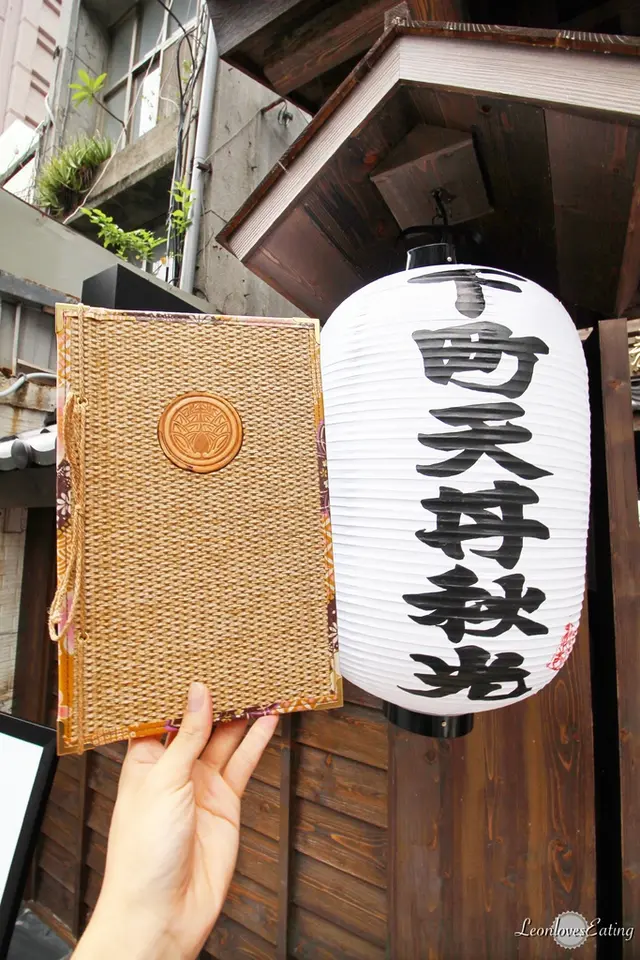 下町天丼秋光
LeonlovesEating